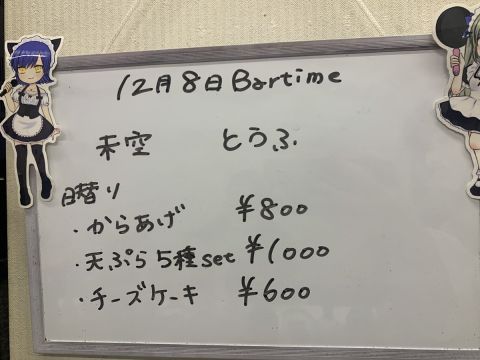 12月8日Bartime
未空 とうふ
日替り
・からあげ ¥800
・天ぷら5種set ¥1000
・チーズケーキ ¥600